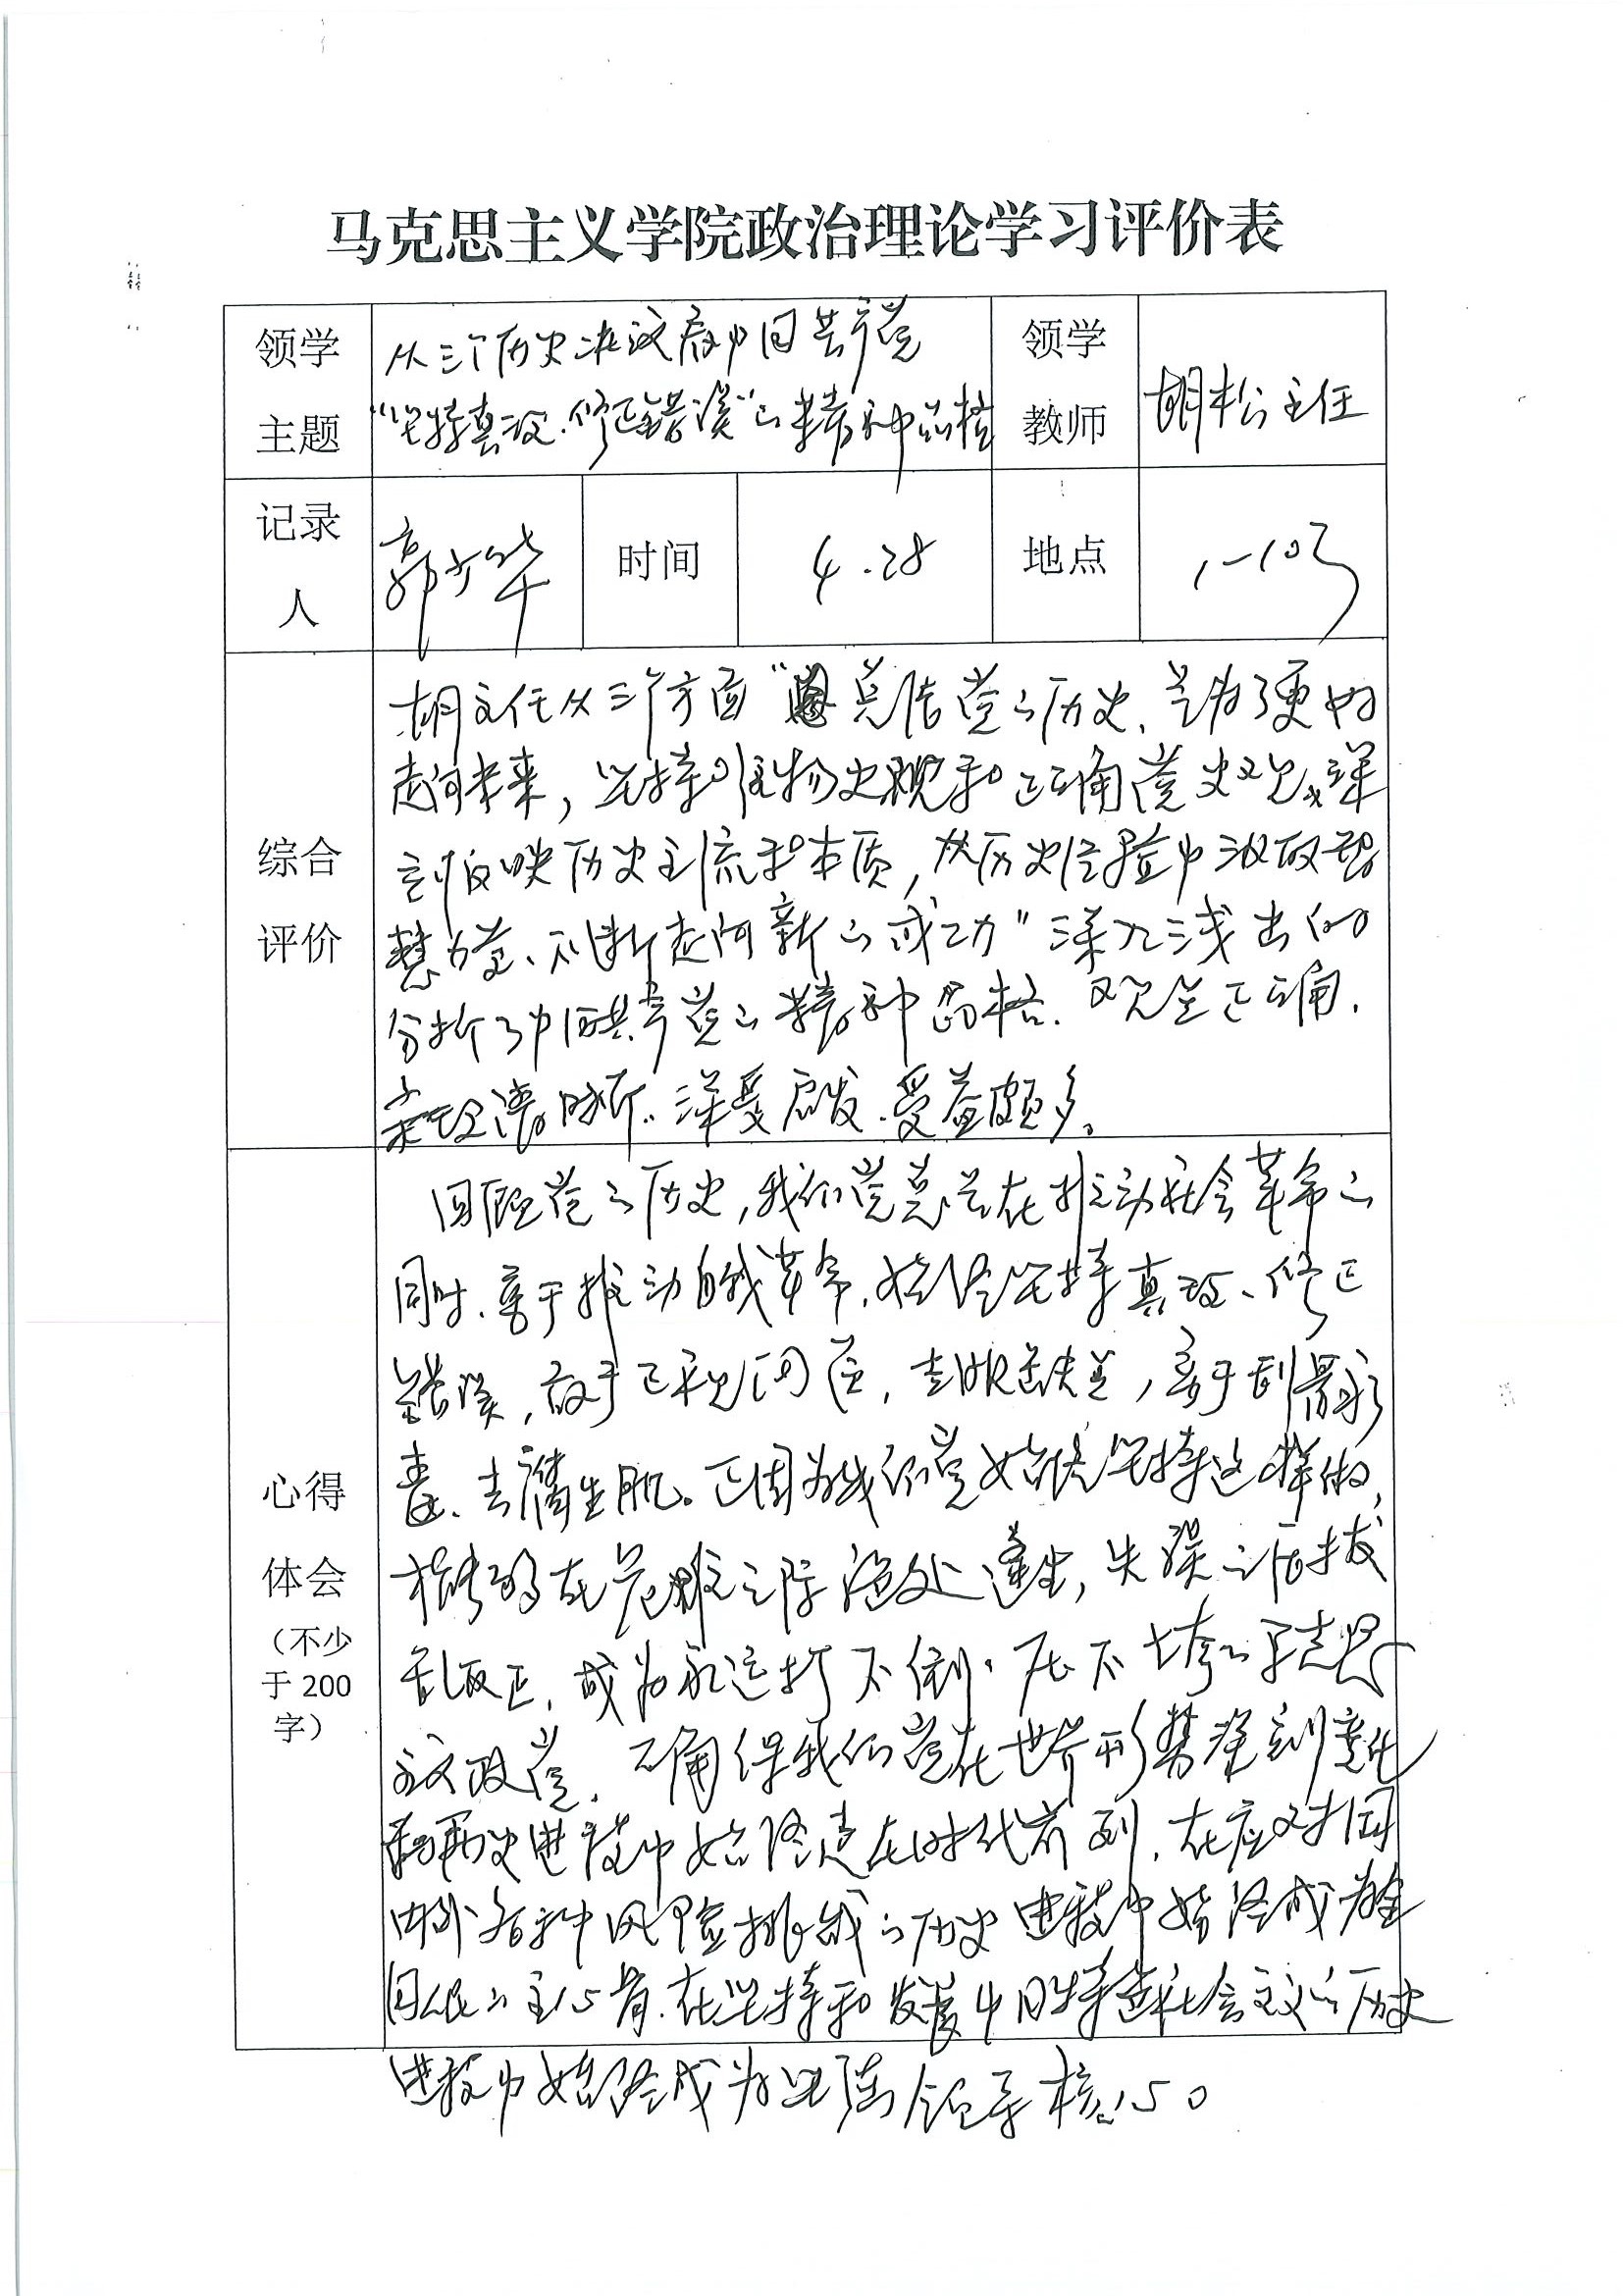 马克思主义学院政治理论学习评价表
领学主题
从三个历史决议看中国共产党
“坚持真理、修正错误”的精神品格
领学教师
胡松主任
记录人
郭少华
时间
4.28
地点
1-103
综合评价
胡主任从三个方面“总结党的历史，是为了更好
走向未来，坚持唯物史观和正确党史观，深
刻反映历史主流和本质，从历史经验中汲取智
慧力量、不断走向新的成功”深入浅出的
分析了中国共产党的精神品格、观点正确、
条理清晰、深受启发、受益颇多。
心得体会
（不少于200字）
回顾党的历史，我们党总是在推动社会革命的
同时、勇于推动自我革命，始终坚持真理、修正
错误，敢于正视问题，克服缺点，勇于刮骨疗
毒、去腐生肌。正因为我们党始终坚持这样做，
才能够在危难之际绝处逢生，失误之后拨
乱反正，成为永远打不倒、压不垮的马克思
主义政党，确保我们党在世界形势深刻变化
的历史进程中始终走在时代前列，在应对国
内外各种风险挑战的历史进程中始终成为全
国人民的主心骨，在坚持和发展中国特色社会主义的历史
进程中始终成为坚强领导核心。